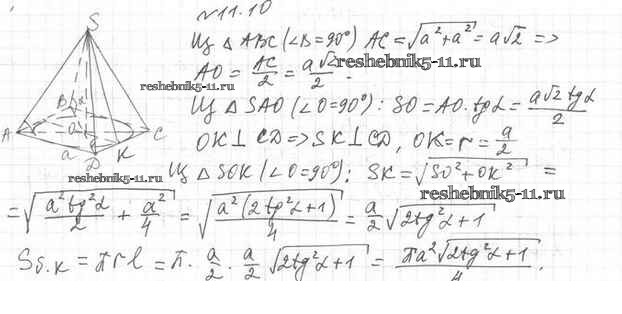 №11.10
S
Из △ ABC (∠B=90°) AC = √(a²+a²) = a√2 =>
AO = AC/2 = a√2/2.
reshebnik5-11.ru
reshebnik5-11.ru
Из △ SAO (∠O=90°): SO = AO·tgα = a√2 tgα/2
B
A O C
a D K
OK⊥CD => SK⊥CD, OK = r = a/2
reshebnik5-11.ru
Из △ SOK (∠O=90°); SK = √(SO²+OK²) =
reshebnik5-11.ru
= √(a²tg²α/2 + a²/4) = √(a²(2tg²α+1)/4) = a/2 √(2tg²α+1)
Sб.к = πrl = π · a/2 · a/2 √(2tg²α+1) = πa²√(2tg²α+1)/4.